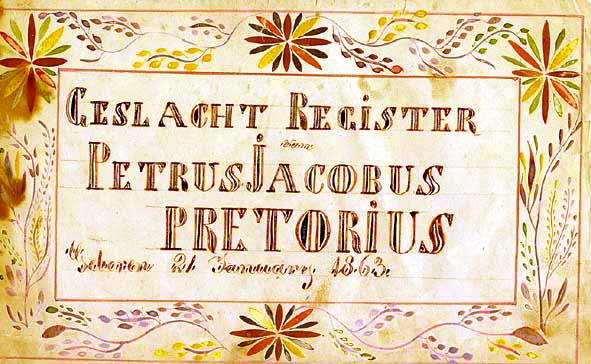 GESLACHT REGISTER
PETRUS JACOBUS
PRETORIUS
Geboren 21 January 1863.